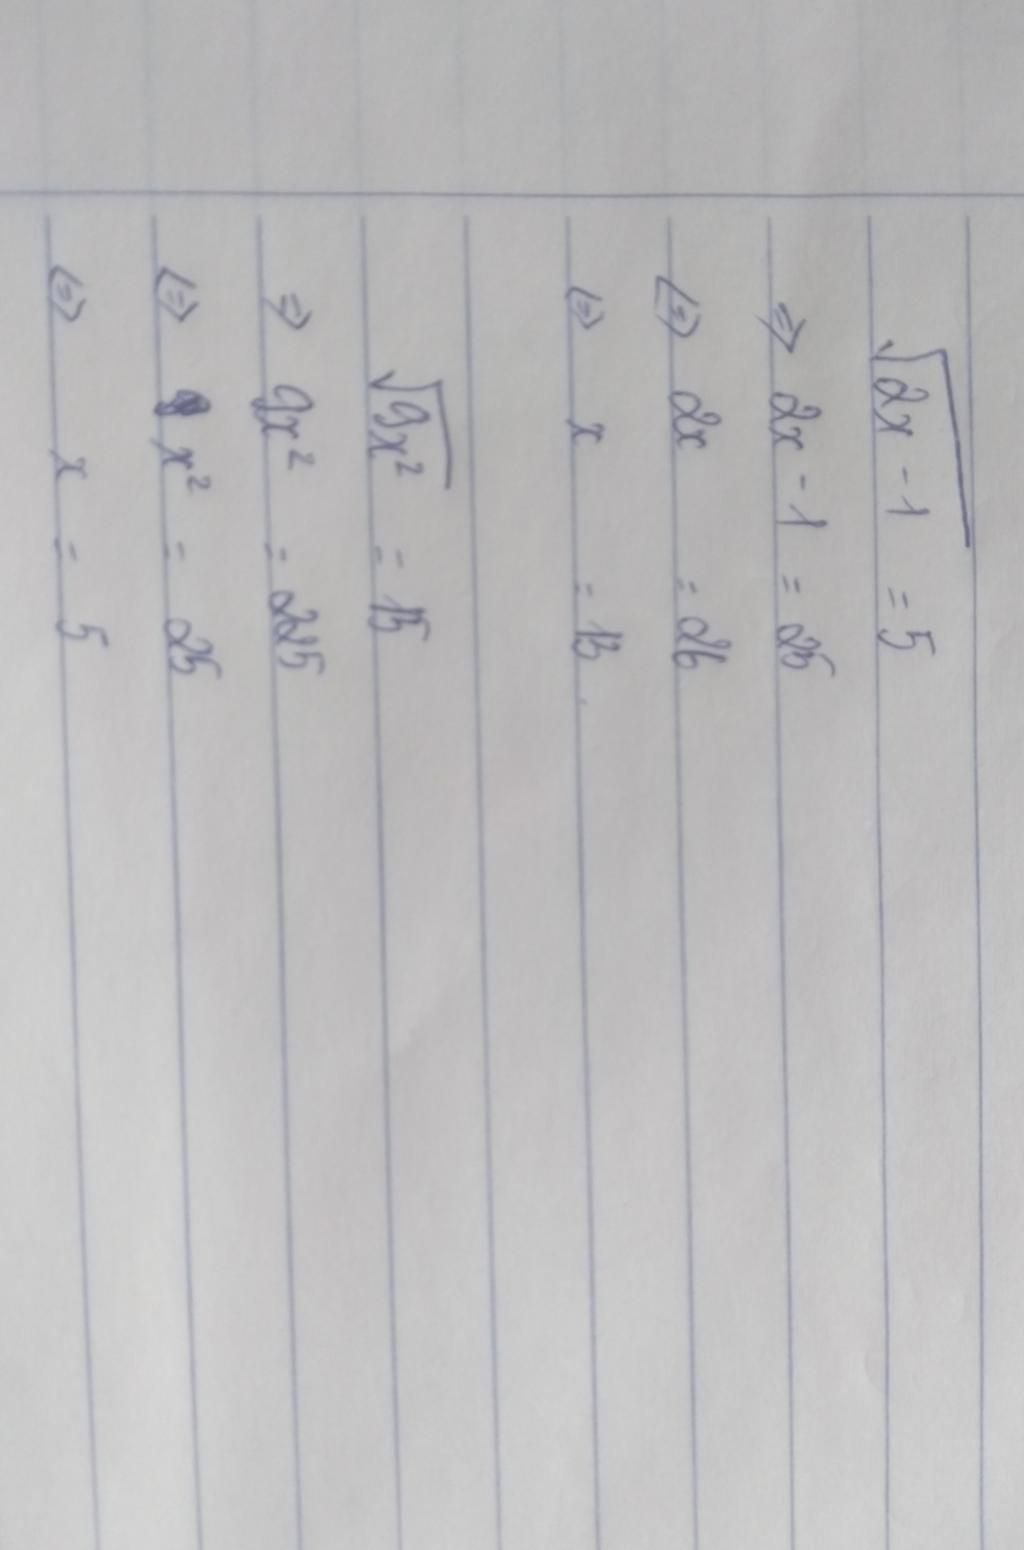 √(2x - 1) = 5
=> 2x - 1 = 25
<=> 2x = 26
<=> x = 13
√(9x²) = 15
=> 9x² = 225
<=> x² = 25
<=> x = 5